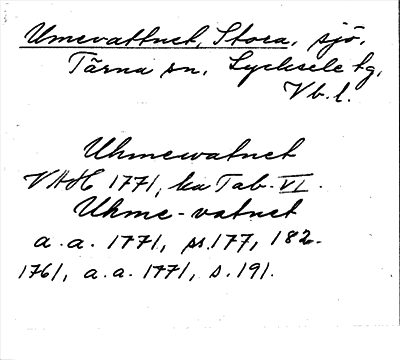 Umevattnet, Stora, sjö.
Tärna sn. Lycksele tg,
Vb. l.
Uhmewatnet
VAH 1771, ka Tab. VI.
Uhme-vatnet
a.a. 1771, ss. 177, 182.
1761, a.a. 1771, s. 191.